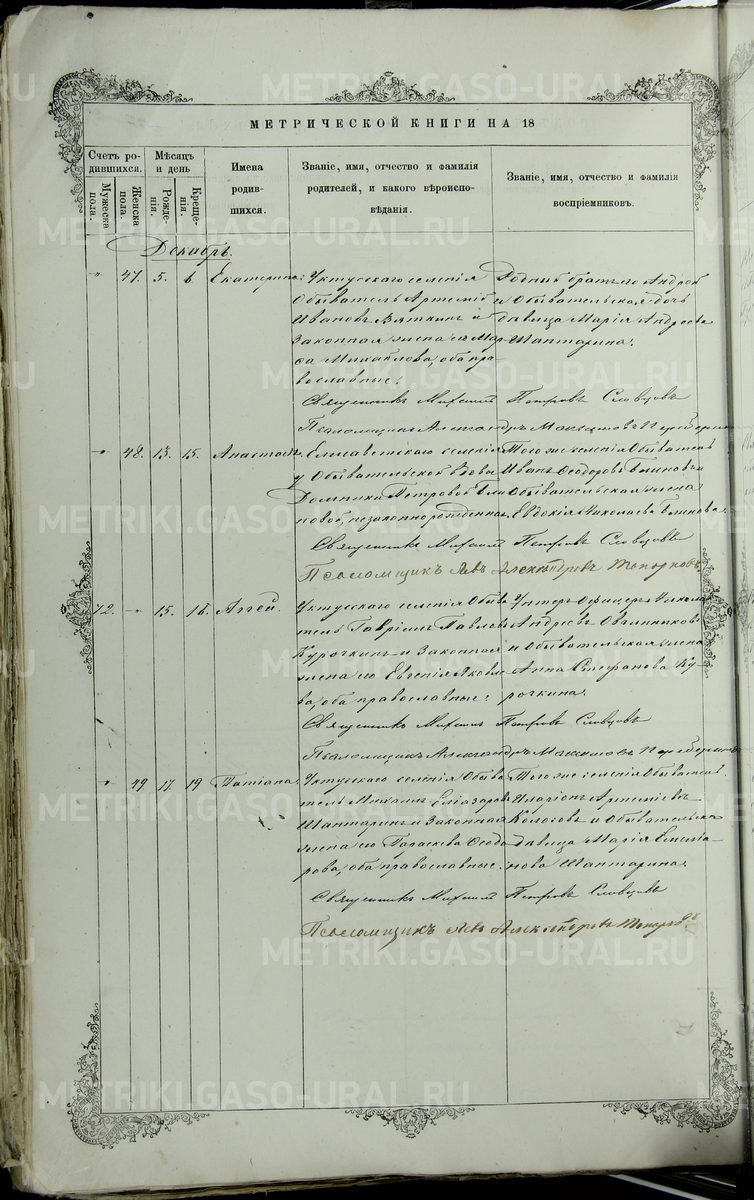 МЕТРИЧЕСКОЙ КНИГИ НА 18
Счетъ родившихся.
Мужеска пола.
Женска пола.
Мѣсяцъ и день
Рожденія.
Крещенія.
Имена родившихся.
Званіе, имя, отчество и фамилія родителей, и какого вѣроисповѣданія.
Званіе, имя, отчество и фамилія воспріемниковъ.
Декабрь.
" 47. 5. 6. Екатерина.
Уктусскаго селенія
Обыватель Артемій
Ивановъ Вяткинъ и
Законная жена его Мар
ѳа Михайлова, оба пра
вославные.
Родный братъ его Андрей
и Обывательская дочь
дѣвица Марія Андреева
Шаптарина.
Священникъ Михаилъ Петровъ Словцовъ
Псаломщикъ Александръ Максимовъ
" 48. 13. 15. Анастасія.
Елисаветскаго селенія
у Обывательской Вдовы
Домники Петровой Бли
новой, незаконнорожденная.
Того же селенія Обыватель
Иванъ Ѳеодоровъ Блиновъ и
Обывательская жена
Евдокія Николаева Блинова.
Священникъ Михаилъ Петровъ Словцовъ
Псаломщикъ Левъ Александровъ Топорковъ
72. " 15. 16. Аггей.
Уктусскаго селенія Обыва
тель Гавріилъ Павловъ
Курочкинъ и Законная
жена его Евгенія Яковле
ва, оба православные.
Унтеръ Офицеръ
Андреевъ Овчинниковъ
и Обывательская жена
Анна Стефанова Ку
рочкина.
Священникъ Михаилъ Петровъ Словцовъ
Псаломщикъ Александръ Максимовъ
" 49 17. 19 Татіана.
Уктусскаго селенія Обыва
тель Михаилъ Еліазаровъ
Шаптаринъ и Законная
жена его Параскева Ѳеодо
рова, оба православные.
Того же селенія Обыватель
Иларіонъ Артеміевъ
и Обывательская
дѣвица Марія Емилiа
нова Шаптарина.
Священникъ Михаилъ Петровъ Словцовъ
Псаломщикъ Левъ Александровъ Топорковъ
METRIKI.GASO-URAL.RU